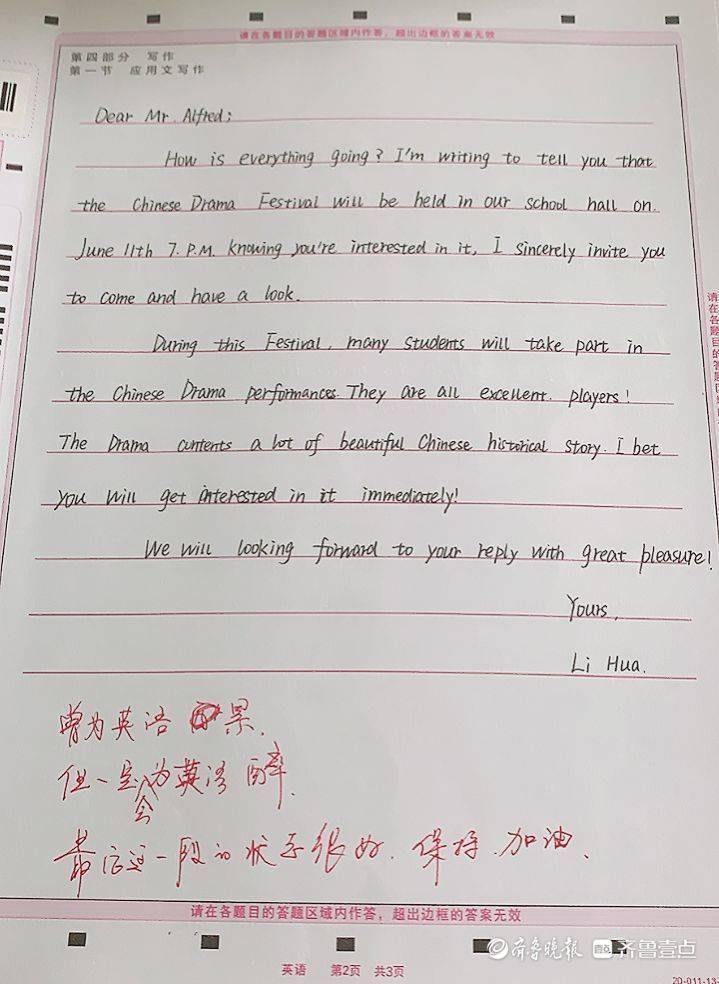 请在各题目的答题区域内作答，超出边框的答案无效
第四部分 写作
第一节 应用文写作
Dear Mr. Alfred:
How is everything going? I'm writing to tell you that
the Chinese Drama Festival will be held in our school hall on
June 11th 7. P.M. Knowing you're interested in it, I sincerely invite you
to come and have a look.
During this Festival, many students will take part in
the Chinese Drama performances. They are all excellent players!
The Drama contents a lot of beautiful Chinese historical story. I bet
you will get interested in it immediately!
We will looking forward to your reply with great pleasure!
Yours,
Li Hua.
曾为英语累.
但一定会为英语醉.
最后这一段的状态很好.保持.加油.
请在各题目的答题区域内作答，超出边框的答案无效
英语 第2页 共3页
齐鲁晚报 齐鲁壹点
20-011-13
请在各题目的答题区